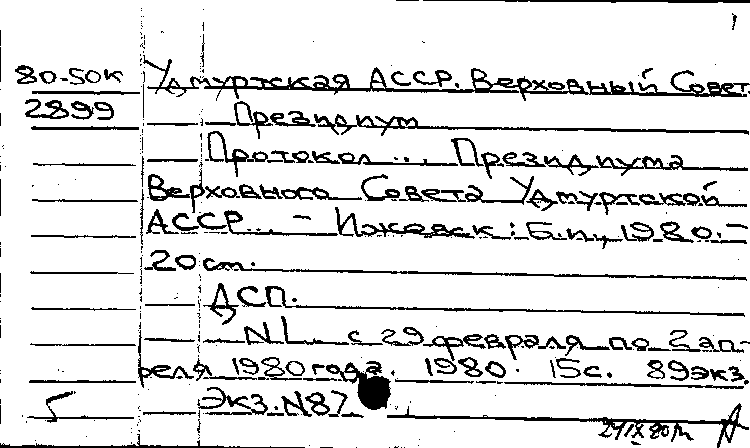 1
80-50к Удмуртская АССР. Верховный Совет.
2899 Президиум
Протокол ... Президиума
Верховного Совета Удмуртской
АССР... – Ижевск: Б.и., 1980. –
20 см.
ДСП.
N1.. с 29 февраля по 2 ап-
реля 1980 года. 1980. 15с. 89экз.
5 Экз. N87